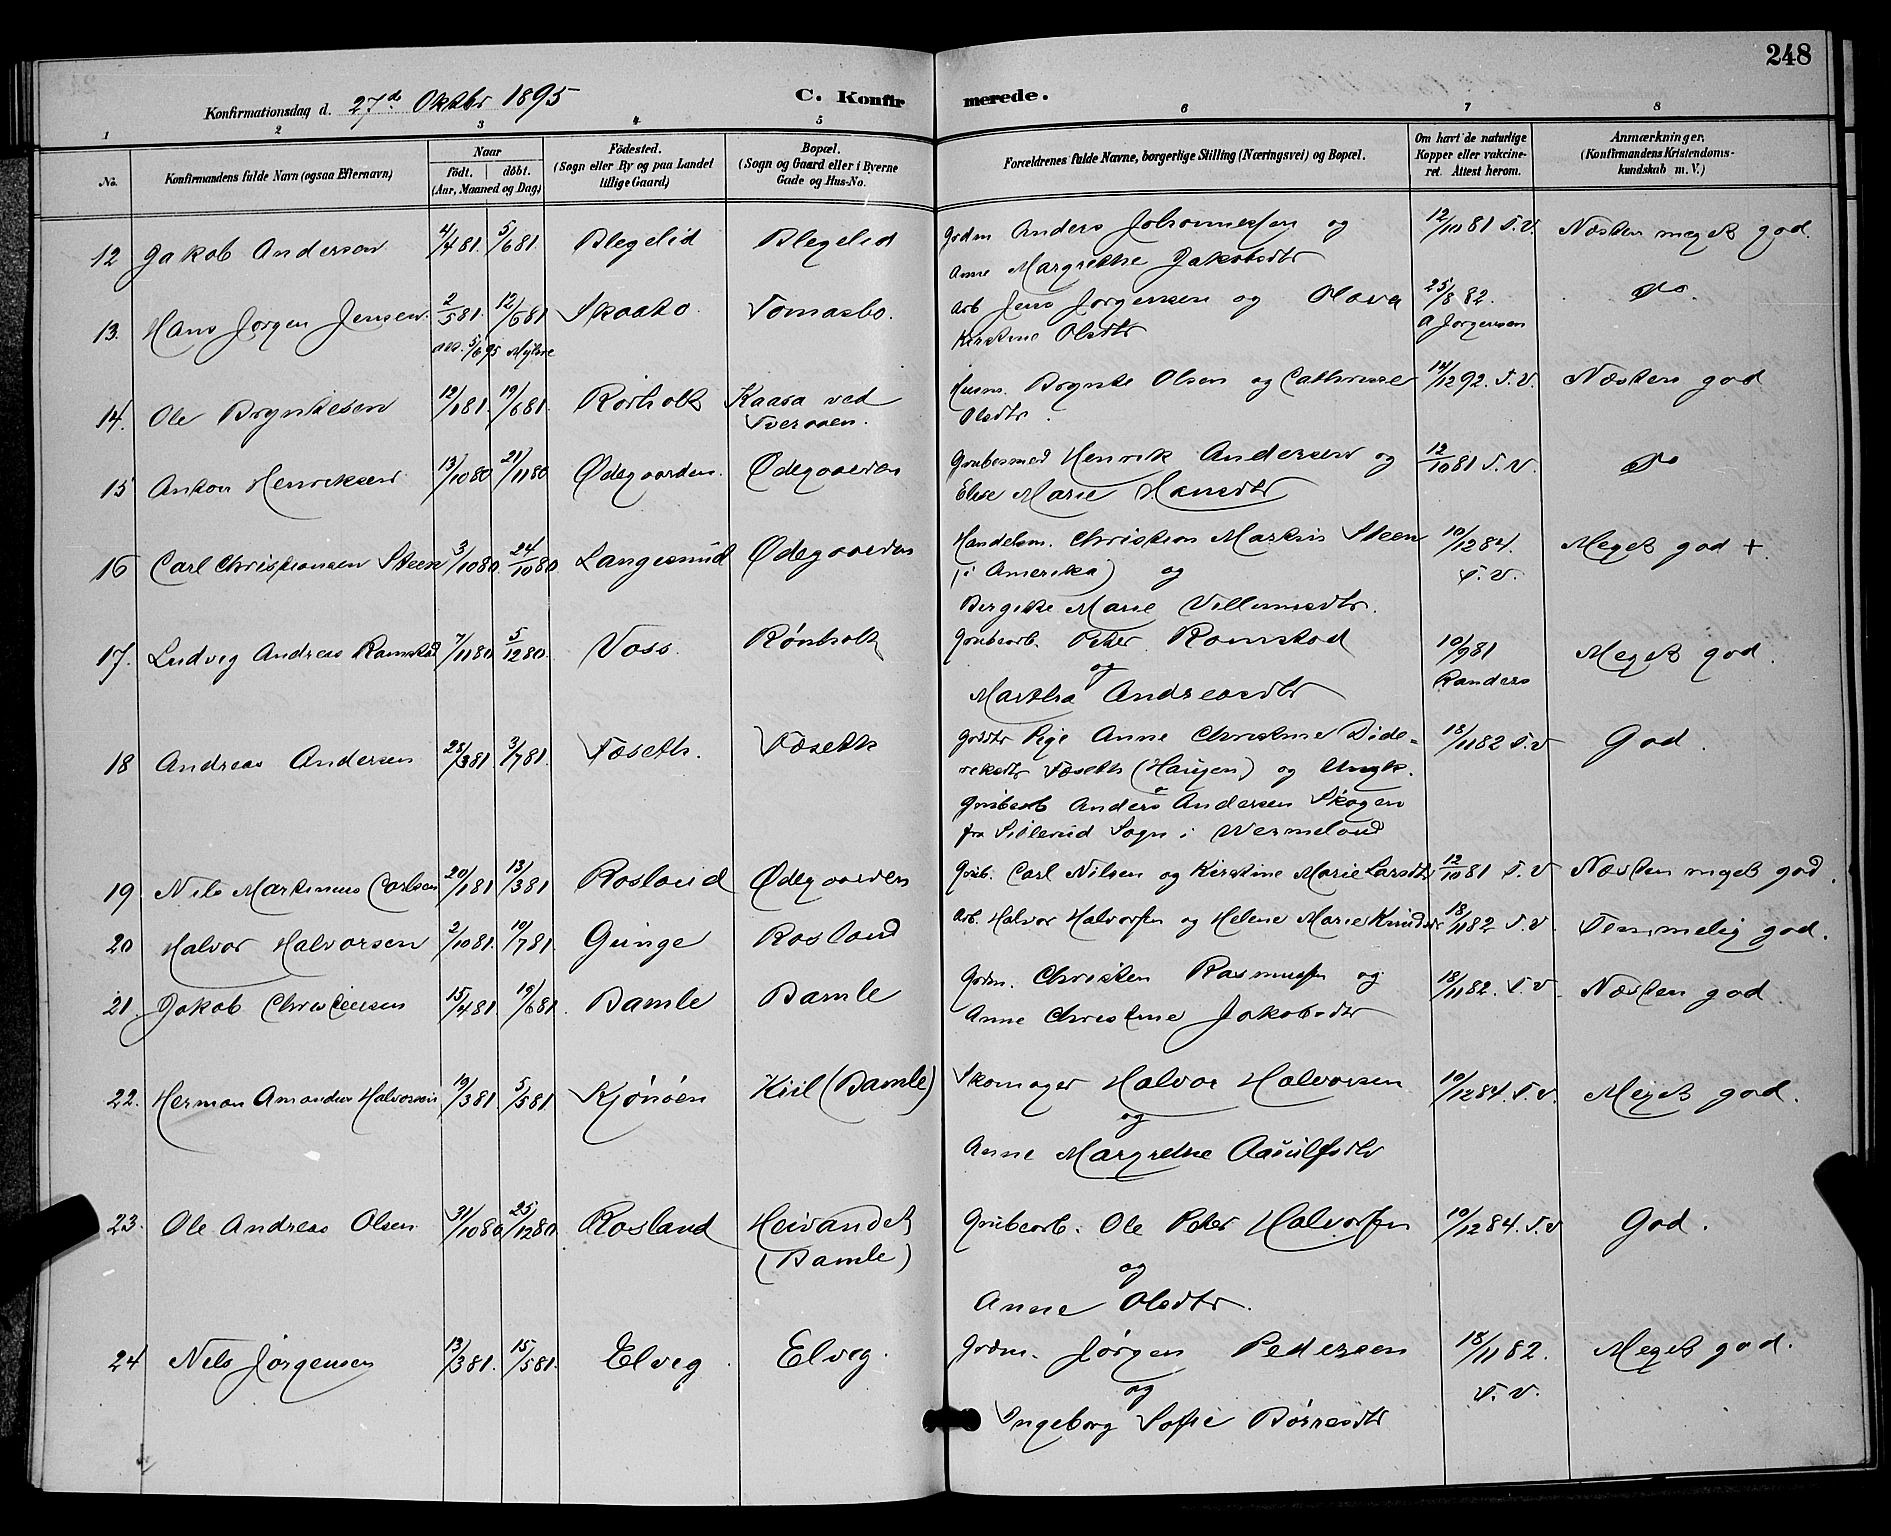 248
Konfirmationsdag d. 27de Oktbr 1895 C. Konfir merede.
1 2 3 4 5 6 7 8
No. Konfirmandens fulde Navn (ogsaa Efternavn) Naar født. døbt. (Aar, Maaned og Dag) Fødested. (Sogn eller By og paa Landet tillige Gaard) Bopæl. (Sogn og Gaard eller i Byerne Gade og Hus-No. Forældrenes fulde Navne, borgerlige Stilling (Næringsvei) og Bopæl. Om havt de naturlige Kopper eller vakcineret. Attest herom. Anmærkninger. (Konfirmandens Kristendomskundskab m. V.)
12 Jakob Andersen 2/4 81. 5/6 81. Blegelid Blegelid Grdm Anders Johannesen og 12/10 81 T.V. Næsten meget god.
Anne Margrethe Jakobsdtr
13. Hans Jørgen Jensen. 2/5 81. 12/6 81 Skaatø Tomasbo. Arb Jens Jørgensen og Olava 25/8 82. do
5/6 95 Kirstine Olsdtr A Jørgensen
14. Ole Bryntesen 12/1 81. 19/6 81. Rørholt Kaasa ved Husm. Brynte Olsen og Cathrine 14/12 92. T.V. Næsten god
Tveraaen. Olsdtr.
15 Anton Henriksen 13/10 80 21/11 80 Ødegaarden. Ødegaarden Grubesmed Henrik Andersen og 12/10 81 T.V. do
Elise Marie Hansdtr
16 Carl Christiansen Steen 3/10 80. 24/10 80 Langesund Ødegaarden Handelsm. Christian Martin Steen 10/12 84. Meget god +.
(i Amerika) og T.V.
Bergitte Marie Villumsdtr.
17. Ludvig Andreas Ramstad 7/11 80 5/12 80. Voss. Rønholt Grubearb. Peter Ramstad 10/9 81 Meget god.
og Randers
Martha Andreasdtr
18 Andreas Andersen 28/3 81. 3/7 81. Fosseth. Fosseth Grdtr Pige Anne Christine Dide= 18/11 82 T.V God.
reksdtr Fosseth (Haugen) og Ungk.
Grubearb Anders Andersen Skogen
fra Sillerud Sogn i Wermeland
19 Nils Martinius Carlsen 20/1 81 13/3 81 Rosland Ødegaarden Grub. Carl Nilsen og Kirstine Marie Larsdtr 12/10 81 T.V Næsten meget god.
20 Halvor Halvorsen 2/10 81. 10/7 81. Gunge Rosland Arb. Halvor Halvorsen og Helene Marie Knudsdtr 18/11 82 T.V. Temmelig god.
21. Jakob Christensen 15/4 81. 19/6 81. Bamle Bamle Grdm. Christen Rasmussen og 18/11 82. T.V. Næsten god
Anne Christine Jakobsdtr
22. Herman Amandus Halvorsen 19/3 81. 5/5 81. Kjønøen Kiil (Bamle) Skomager Halvor Halvorsen 10/12 84. T.V. Meget god.
og
Anne Margrethe Aasulfsdtr
23. Ole Andreas Olsen 31/10 80 25/12 80. Rosland Heivandet Grubearb. Ole Peter Halvorsen 10/12 84. T.V God.
(Bamle) og
Anne Olsdtr.
24 Nels Jørgensen 13/3 81. 15/5 81. Elveg. Elveg. Grdm. Jørgen Pedersen 18/11 82. Meget god.
og T.V.
Ingeborg Sofie Børresdtr